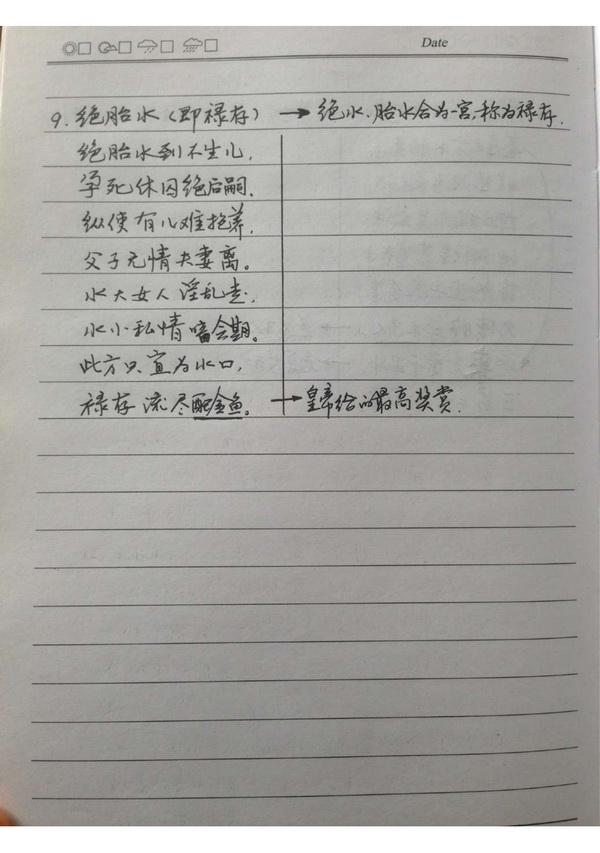 Date
9. 绝胎水（即禄存）→ 绝水、胎水合为一宫，称为禄存.
绝胎水到不生儿,
孕死休囚绝后嗣.
纵使有儿难抱养,
父子无情夫妻离。
水大女人淫乱走,
水小私情暗会期。
此方只宜为水口,
禄存流尽配金鱼。→ 皇帝给的最高奖赏.